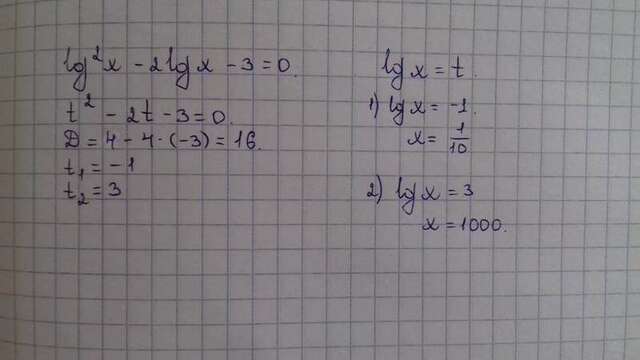 lg²x - 2lgx - 3 = 0.
t² - 2t - 3 = 0.
D = 4 - 4·(-3) = 16.
t₁ = -1
t₂ = 3
lg x = t.
1) lg x = -1.
x = 1/10
2) lg x = 3
x = 1000.